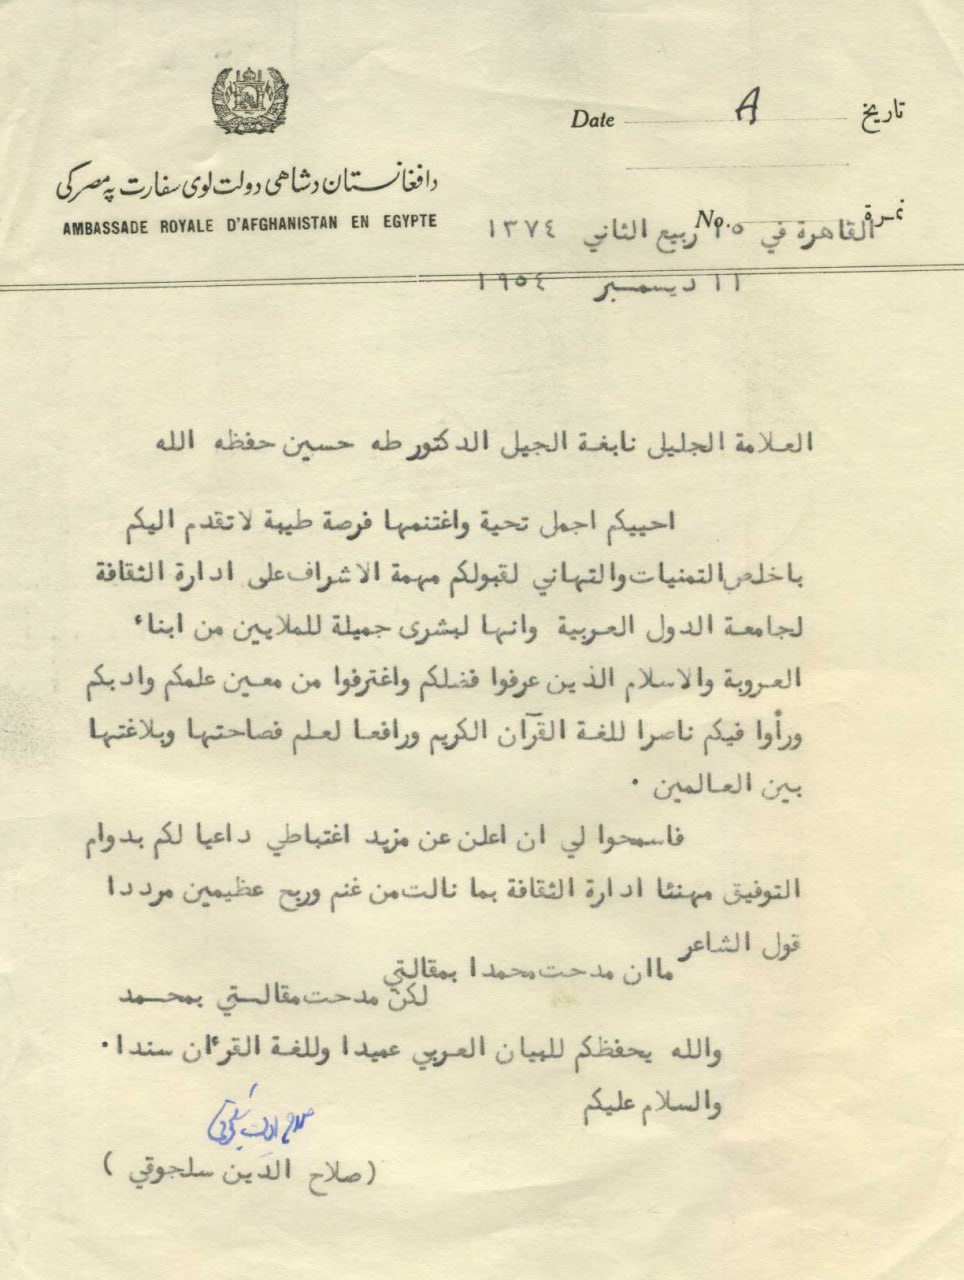 Date A تاريخ
دافغانستان دشاهی دولت لوی سفارت په مصر کی
AMBASSADE ROYALE D'AFGHANISTAN EN EGYPTE
No. نمرة
القاهرة في ١٥ ربيع الثاني ١٣٧٤
١١ ديسمبر ١٩٥٤
العلامة الجليلى نابغة الجيل الدكتور طه حسين حفظه الله
احييكم اجمل تحية واغتنمها فرصة طيبة لاتقدم اليكم
باخلص التمنيات والتهاني لقبولكم مهمة الاشراف على ادارة الثقافة
لجامعة الدول العربية وانها لبشرى جميلة للملايين من ابناء
العروبة والاسلام الذين عرفوا فضلكم واغترفوا من معين علمكم وادبكم
ورأوا فيكم ناصرا للغة القرآن الكريم ورافعا لعلم فصاحتها وبلاغتها
بين العالمين ٠
فاسمحوا لي ان اعلن عن مزيد اغتباطي داعيا لكم بدوام
التوفيق مهنئا ادارة الثقافة بما نالت من غنم وربح عظيمين مرددا
قول الشاعر
ماان مدحت محمدا بمقالتي
لكن مدحت مقالتي بمحمد
والله يحفظكم للبيان العربي عميدا وللغة القرءان سندا ٠
والسلام عليكم
صلاح الدين سلجوقي
( صلاح الدين سلجوقي )